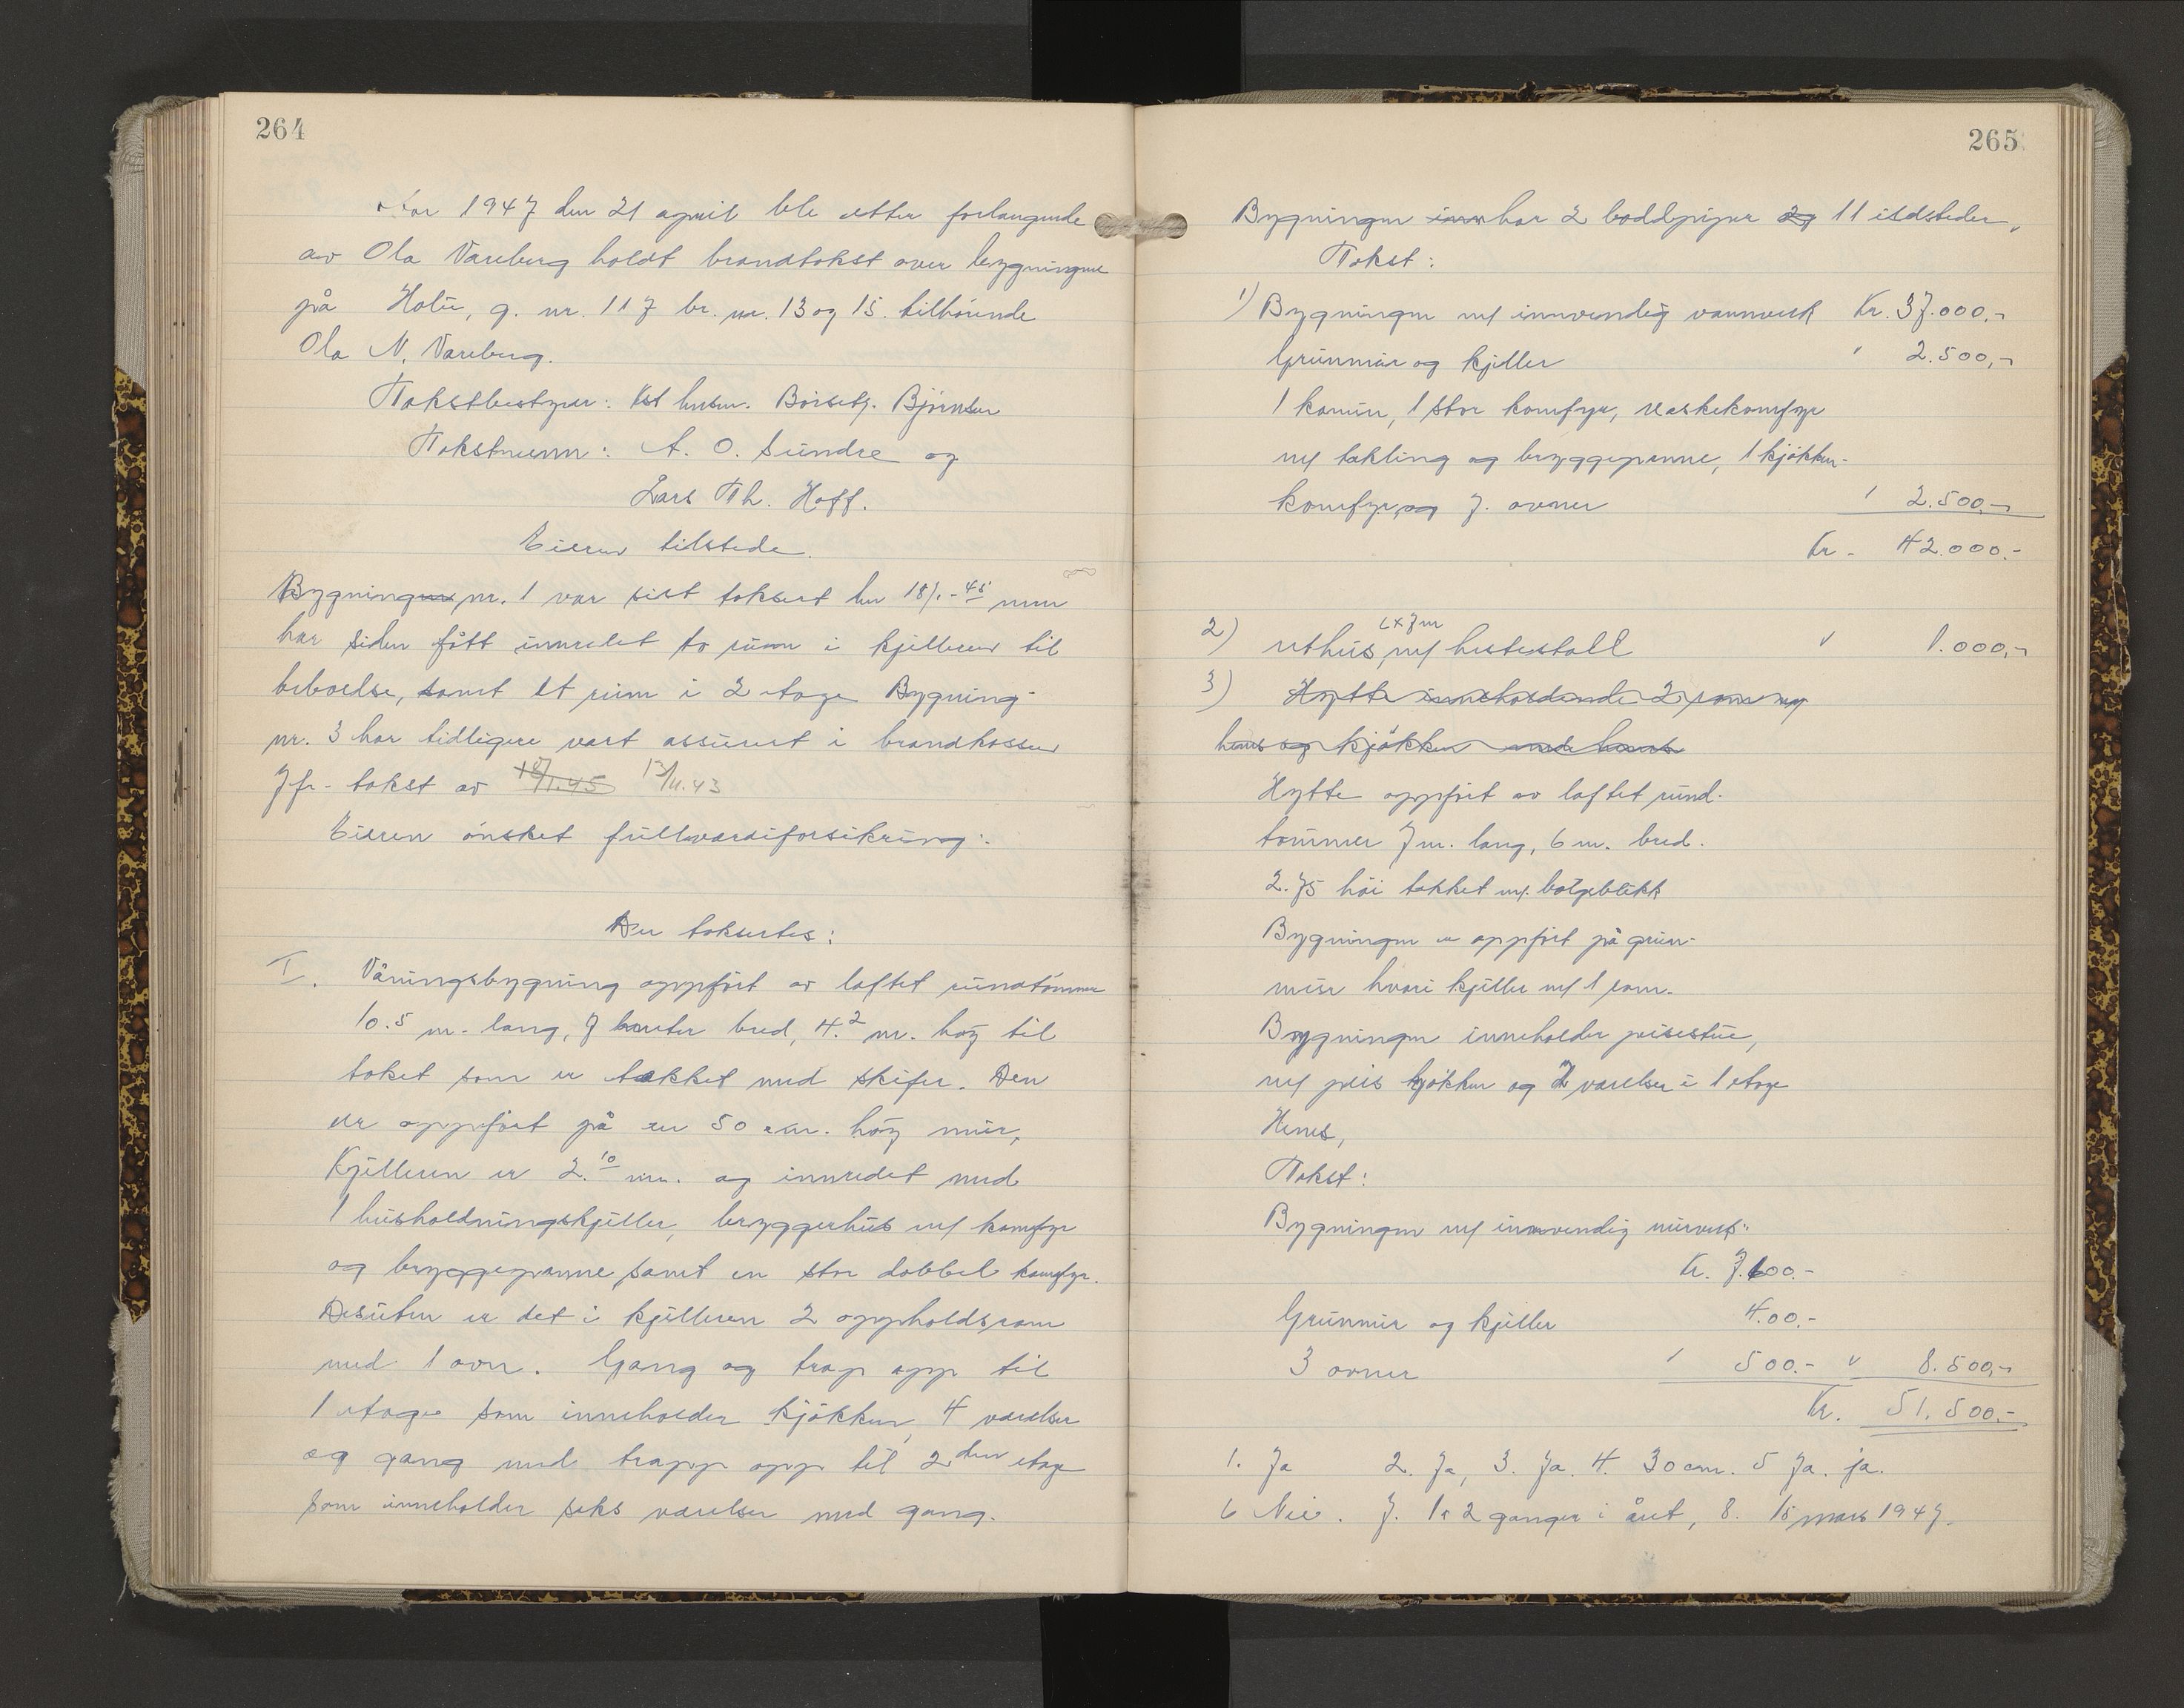 264
År 1947 den 21 april ble etter forlangende
av Ola Vareberg holdt brandtakst over bygningene
på Holie, g. nr. 117 br. nr. 13 og 15. tilhörende
Ola N. Vareberg.
Takstbestyrer: Björnsen
Takstmenn: A. O. Sundre og
Lars Th. Hoff.
Eieren tilstede.
Bygning nr. 1 var sist taksert den 18/1-45 men
har siden fått innredet to rum i kjelleren til
beboelse, samt et rum i 2 etage Bygning
nr. 3 har tidligere vært assurert i brandkassen
Jfr. takst av 18/1.45 13/11.43
Eieren ønsket fullverdiforsikring:
Der taksertes:
I. Våningsbygning oppfört av laftet rundtömmer
10.5 m. lang, 7 meter bred, 4.2 m. höy til
taket som er tekket med skifer. Den
er oppfört på en 50 cm. höy mur,
Kjelleren er 2.10 m. og innredet med
1 husholdningskjeller, bryggerhus m/ komfyr
og bryggepanne samt en stor dobbel komfyr.
Desuten er det i kjelleren 2 oppholdsrom
med 1 ovn. Gang og trap opp til
1 etage som inneholder kjökken, 4 værelser
og gang med trapp opp til 2den etage
som inneholder seks værelser med gang.
265
Bygningen har 2 loddpiper og 11 ildsteder.
Takst:
1) Bygningen m/ innvendig vannverk Kr. 37.000.-
Grunnmur og kjeller " 2.500,-
1 kamin, 1 stor komfyr, vaskekomfyr
m/ takling og bryggepanne, 1 kjökken-
komfyr og 7. ovner " 2.500,-
Kr. 42.000.-
6x7m
2) Uthus, m/ hestestall " 1.000,-
3) Hytte inneholdende 2 rom og
hems og kjökken
Hytte oppfört av laftet rund-
tömmer 7 m. lang, 6 m. bred.
2.75 höi takket m/. bølgeblikk
Bygningen er oppfört på grun-
mur hvori kjeller m/ 1 rom.
Bygningen inneholder peisestue,
m/ peis kjökken og 2 værelser i 1 etage
Hems,
Takst:
Bygningen m/ innvendig murverk:
Kr. 7.600.-
Grunmur og kjeller 4.00.-
3 ovner " 500.- " 8.500,-
Kr. 51.500.-
1. Ja 2. Ja, 3. Ja. 4. 30 cm. 5 Ja. ja.
6 Nei. 7. 1 à 2 ganger i året, 8. 15 mars 1947.